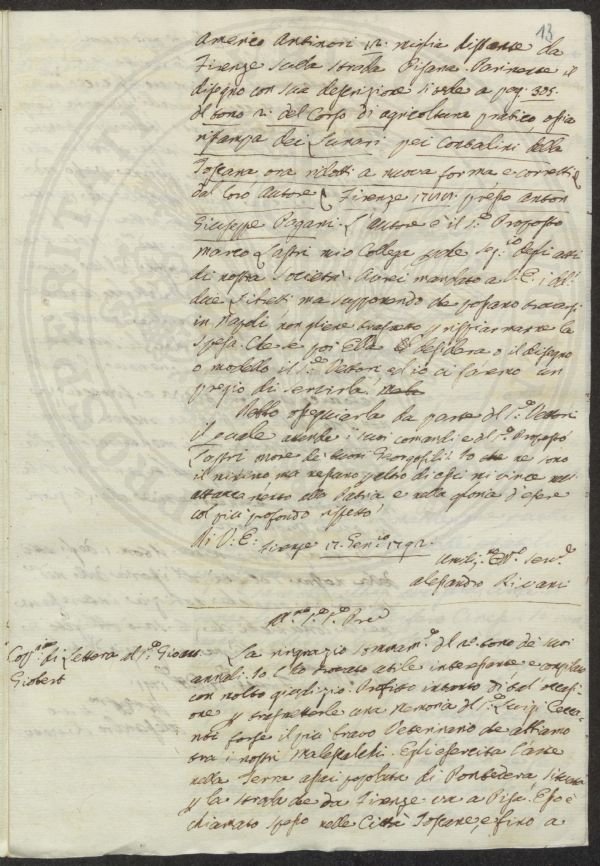 13
Amerco Antinori 12. miglia distante da
Firenze sulla strada Pisana. Parimente il
disegno con sua descrizione si vede a pag. 305.
del tomo 2. del Corso di agricoltura pratica, ossia
ristampa dei Lunari pei Contadini della
Toscana ora ridotti a nuova forma e corretti
dal loro Autore Firenze presso Anton
Giuseppe Pagani. L'autore è il Sig.e Proposto
Marco Lastri mio Collega Seg.io degli atti
di nostra società. Avrei mandato a V.E. i
due Libretti ma supponendo che possano trovarsi
in Napoli non gliene trasmetto p rispiarmarne la
spesa. Che se poi Ella desidera o il disegno
o modello il S.e Vettori ed io ci faremo un
pregio di servirla.
Debbo ossequiarla da parte del S.e Vettori
il quale attende i suoi comandi e del S.e Proposto
Lastri more de' buoni Georgofili. Io che ne sono
il minimo ma nessuno di essi mi vince
attaccamento alla Patria e nella gloria d'essere
col più profondo rispetto
Di V.E. Firenze 17. Gen.io 1792.
Umiliss.mo Serv.e
Alessandro Rivani
Copia di Lettera al S.e Giovanni
Giobert
La ringrazio sommam.e del tomo de' suoi
annali. Io l'ho trovato utile interessante e compilato
con molto giudizio. Profitto intanto di tal occasi
one p trasmetterle una memoria del S.e Luigi
forse il più bravo Veterinario che abbiamo
tra i nostri Malescalchi. Egli esercita l'arte
nella Terra assai popolata di Pontedera situata
p la strada che da Firenze va a Pisa. Esso è
chiamato spesso nelle Città Toscane, e fino a